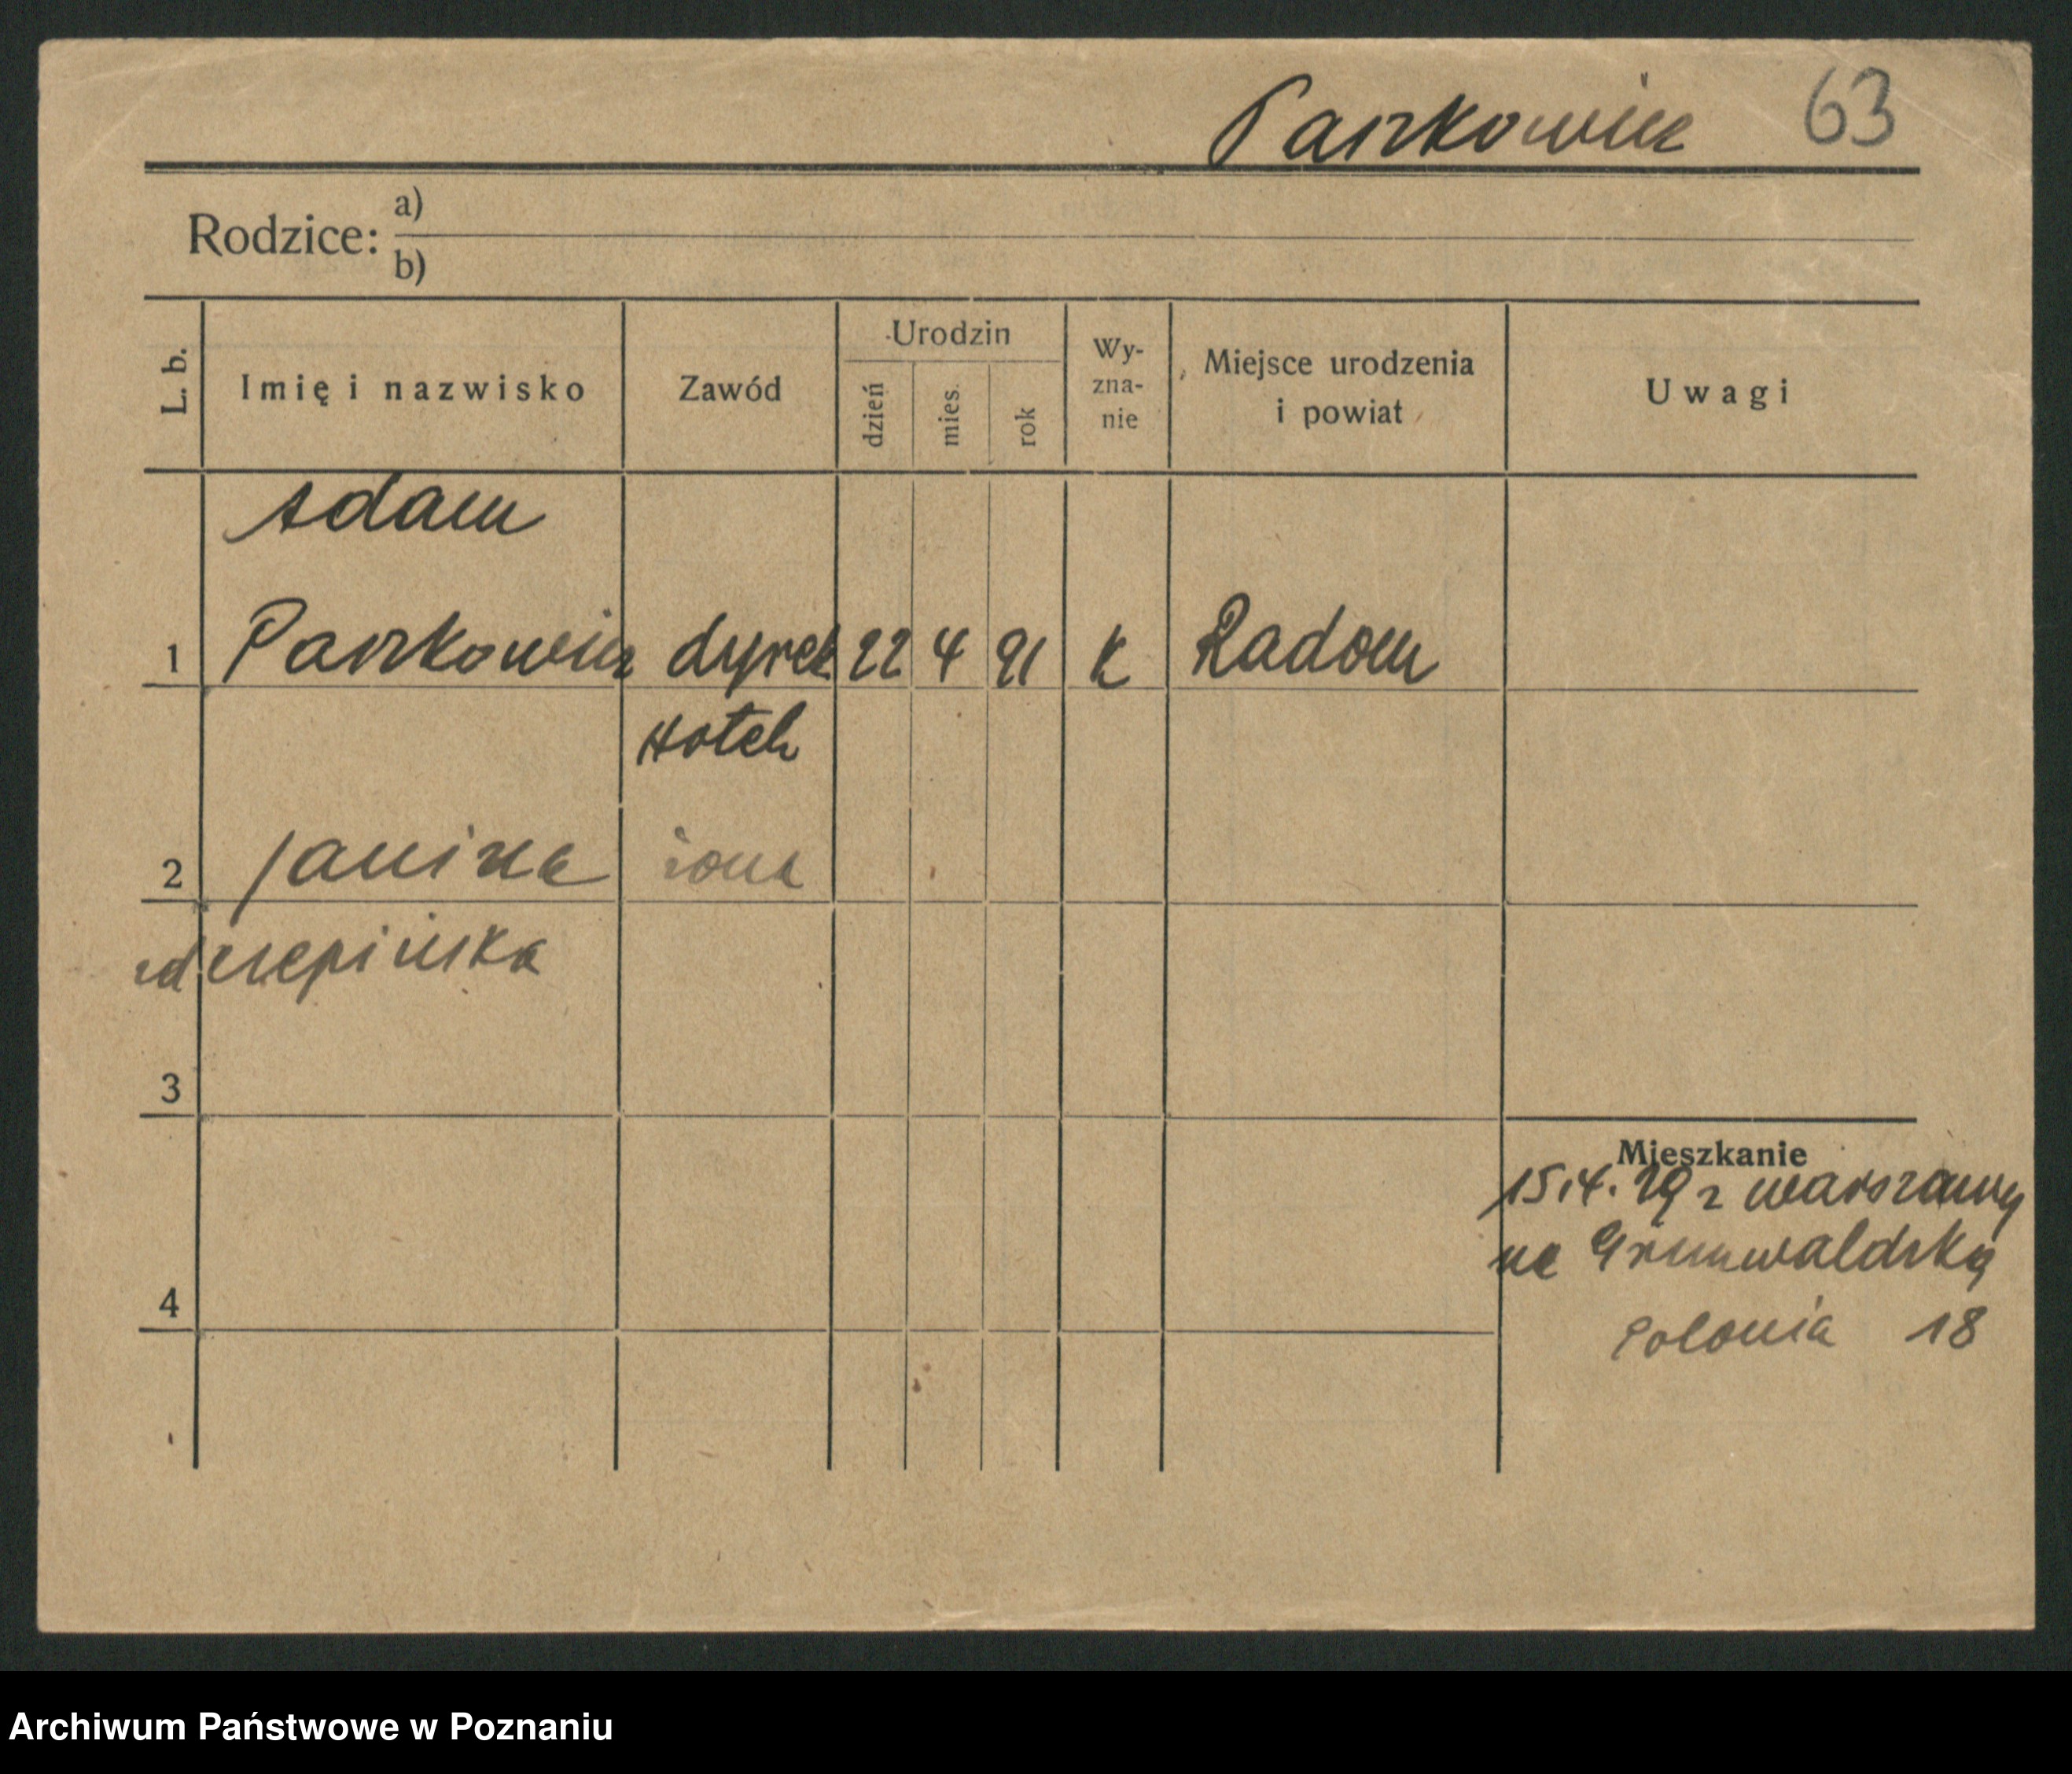 Paszkowicz 63
Rodzice: a)
b)
L. b. Imię i nazwisko Zawód Urodzin dzień mies. rok Wy-zna-nie Miejsce urodzenia i powiat Uwagi
Adam
1 Paszkowicz dyrek 22 4 91 K Radom
Hotelu
2 Janina żona
3
Mieszkanie
15.4.29 z Warszawy
na Grunwaldską
4
Polonia 18
Archiwum Państwowe w Poznaniu